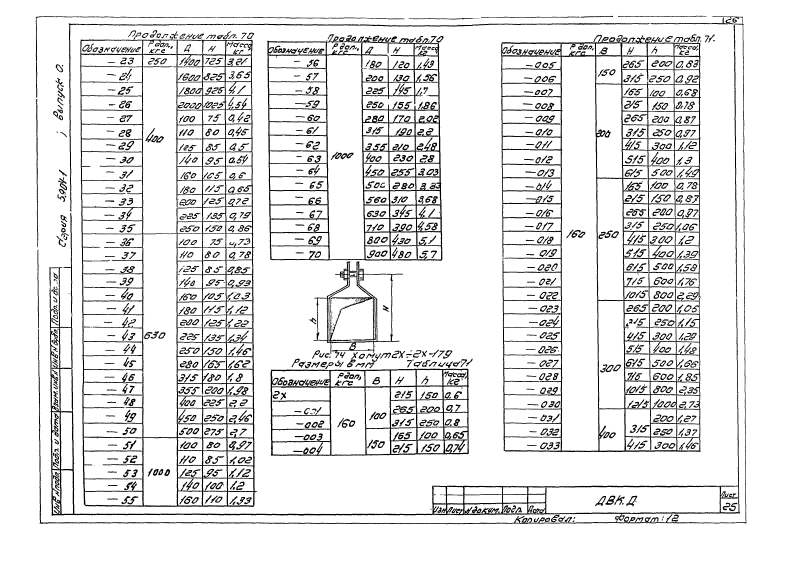 126
Продолжение табл. 70
Обозначение Pдоп., кгс Д Н Масса, кг
-23 250 1400 725 3,21
-24 1600 825 3,65
-25 1800 925 4,1
-26 2000 1025 4,54
-27 400 100 75 0,42
-28 110 80 0,45
-29 125 85 0,5
-30 140 95 0,54
-31 160 105 0,6
-32 180 115 0,65
-33 200 125 0,72
-34 225 135 0,79
-35 250 150 0,86
-36 630 100 75 0,73
-37 110 80 0,78
-38 125 85 0,85
-39 140 95 0,93
-40 160 105 1,03
-41 180 115 1,12
-42 200 125 1,22
-43 225 135 1,34
-44 250 150 1,46
-45 280 165 1,62
-46 315 180 1,8
-47 355 200 1,98
-48 400 225 2,2
-49 450 250 2,46
-50 500 275 2,7
-51 1000 100 80 0,97
-52 110 85 1,02
-53 125 95 1,12
-54 140 100 1,2
-55 160 110 1,33
Продолжение табл. 70
Обозначение Pдоп., кгс Д Н Масса, кг
-56 1000 180 120 1,43
-57 200 130 1,56
-58 225 145 1,7
-59 250 155 1,86
-60 280 170 2,02
-61 315 190 2,2
-62 355 210 2,48
-63 400 230 2,8
-64 450 255 3,03
-65 500 280 3,33
-66 560 310 3,68
-67 630 345 4,1
-68 710 390 4,58
-69 800 430 5,1
-70 900 480 5,7
h В Н
Рис. 74 Хомут 2Х÷2Х-179
Размеры в мм Таблица 71
Обозначение Pдоп., кгс В Н h Масса, кг
2Х 160 100 215 150 0,6
-001 265 200 0,7
-002 315 250 0,8
-003 150 165 100 0,65
-004 215 150 0,74
Продолжение табл. 71.
Обозначение Pдоп., кгс В Н h Масса, кг
-005 160 150 265 200 0,83
-006 315 250 0,92
-007 200 165 100 0,68
-008 215 150 0,78
-009 265 200 0,87
-010 315 250 0,97
-011 415 300 1,12
-012 515 400 1,3
-013 615 500 1,49
-014 250 165 100 0,78
-015 215 150 0,87
-016 265 200 0,97
-017 315 250 1,06
-018 415 300 1,2
-019 515 400 1,39
-020 615 500 1,58
-021 715 600 1,76
-022 1015 800 2,29
-023 300 265 200 1,05
-024 315 250 1,15
-025 415 300 1,29
-026 515 400 1,48
-027 615 500 1,66
-028 715 600 1,85
-029 1015 800 2,35
-030 1215 1000 2,73
-031 400 200 1,27
-032 315 250 1,37
-033 415 300 1,46
Серия 5.904-1 ; Выпуск 0.
Инв. № подл. Подп. и дата Взам. инв. № Инв. № дубл. Подп. и дата
Изм Лист № докум. Подп. Дата
ДВК.Д
Лист
25
Копировал: Формат: 12